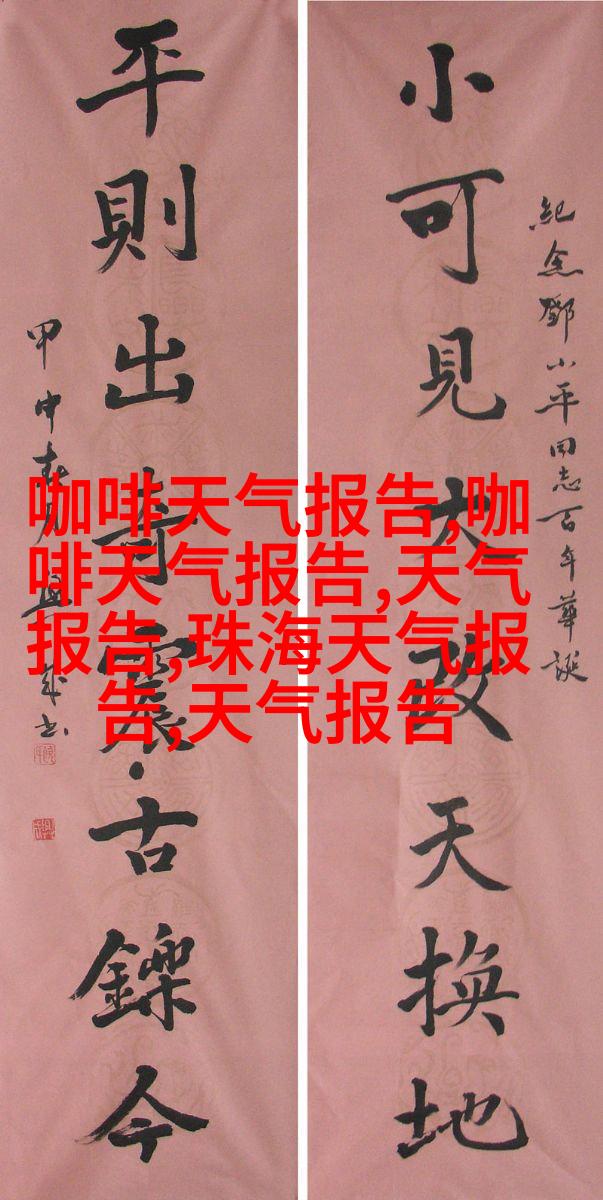 紀念鄧小平同志百年華誕
小可見大改天換地
平則出奇震古鑠今
甲申春月
咖啡天气报告,咖
啡天气报告,天气
报告,珠海天气报
告,天气报告